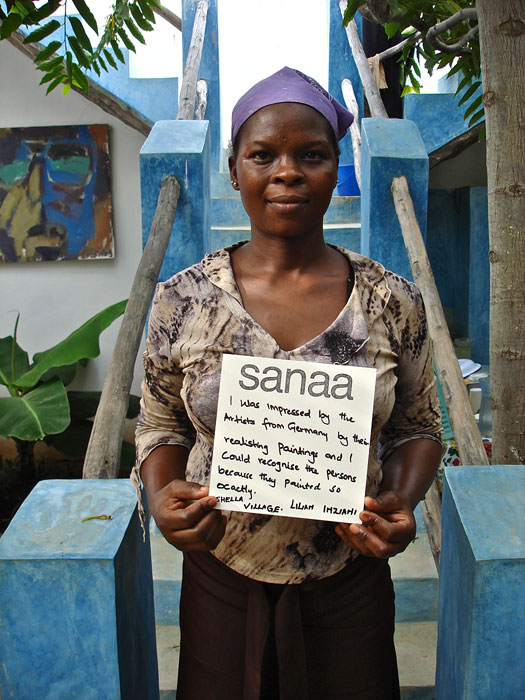 sanaa
I WAS IMPRESSED BY THE
ARtists FROM GERMANY By their
realisting Paintings and I
Could recognise the persons
because they painted so
exactly.
SHELLA
VILLAGE. LILIAN IMZIAMI